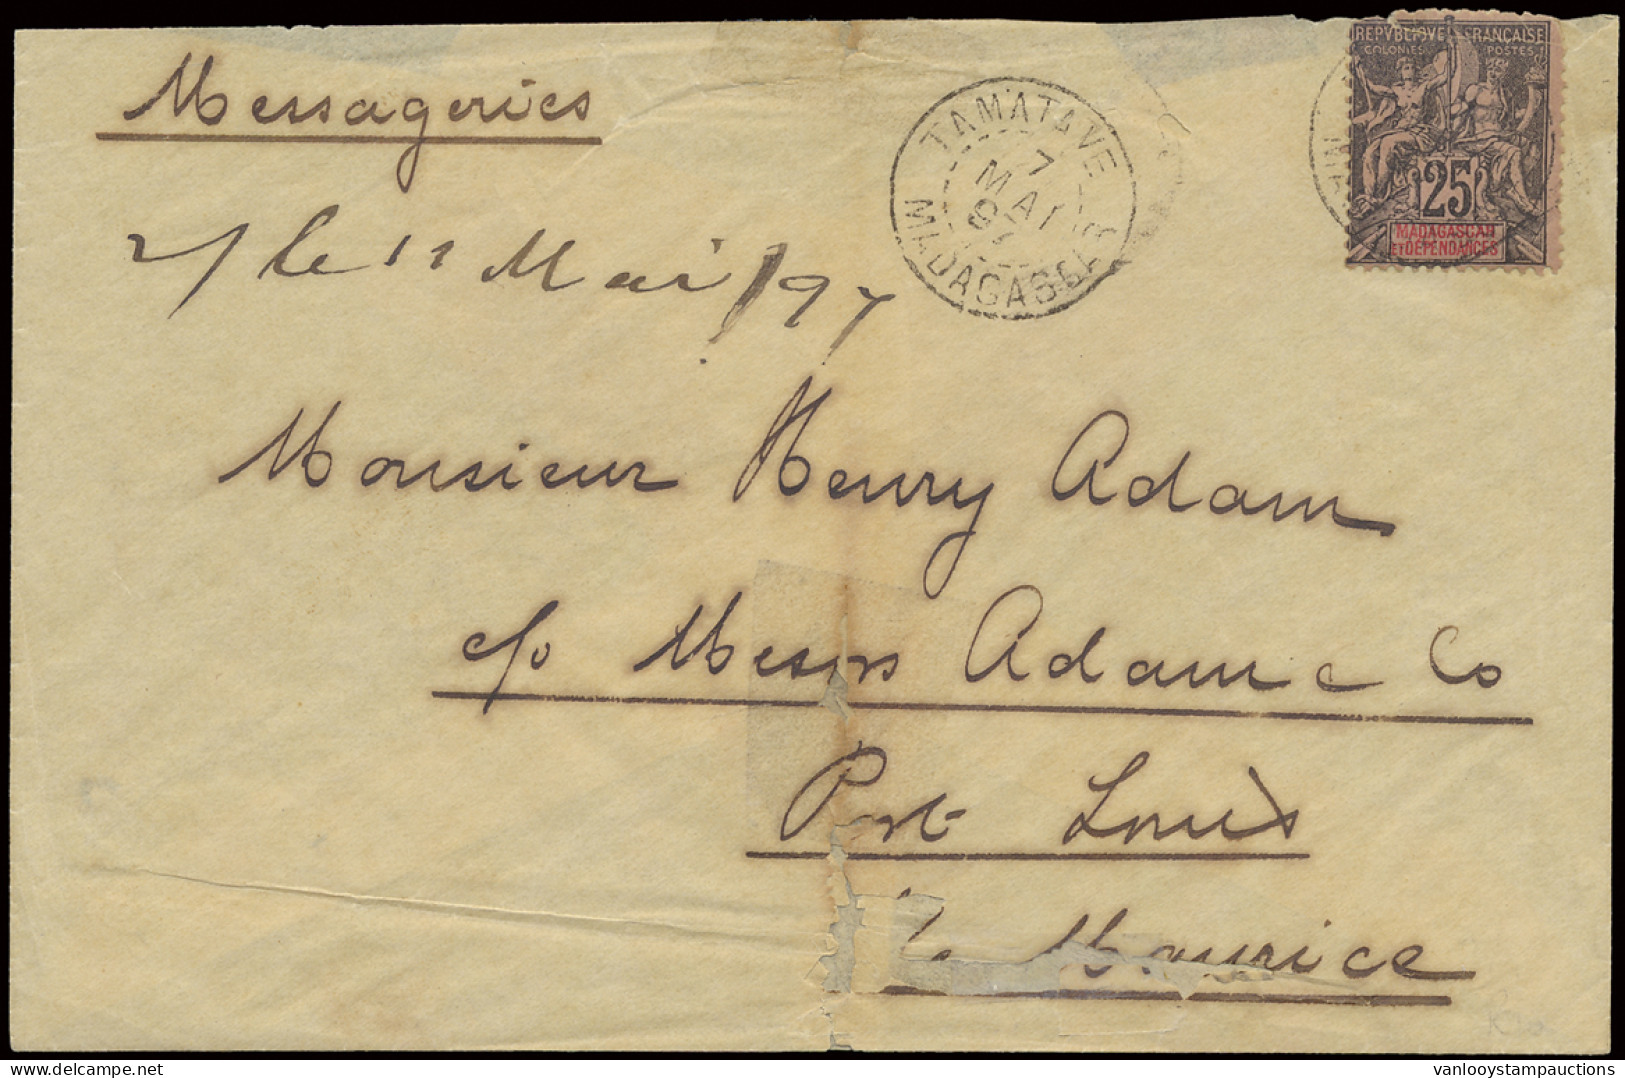 Messageries
le 11 Mai / 97
Monsieur Henry Adam
c/o Messrs Adam & Co
Port Louis
Maurice
TAMATAVE
7
MAI
97
MADAGASCAR
REPVBLIQVE FRANÇAISE
COLONIES POSTES
25
MADAGASCAR
ET DÉPENDANCES
vanlooystampauctions